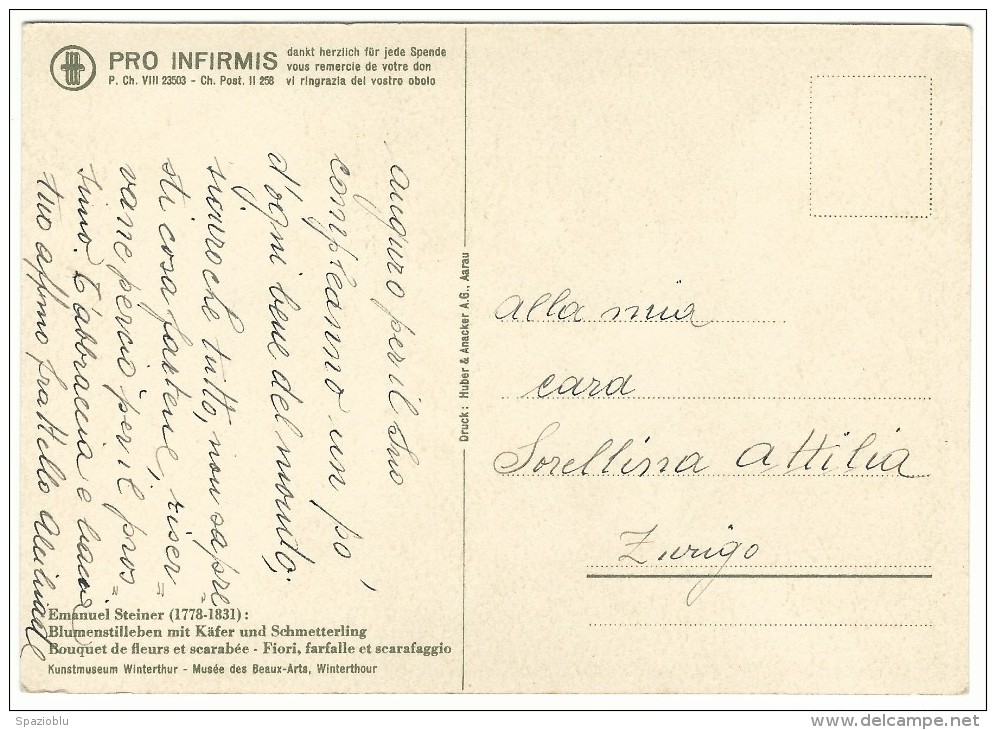 PRO INFIRMIS
P. Ch. VIII 23503 - Ch. Post. II 258
dankt herzlich für jede Spende
vous remercie de votre don
vi ringrazia del vostro obolo
auguro per il Suo
compleanno un pò,
d'ogni bene del mondo;
sicuro che tutto, non sapre=
sti cosa fartene, riser=
vane perciò per il pros=
simo. T'abbraccia e bacia
tuo affmo fratello
Emanuel Steiner (1778-1831):
Blumenstilleben mit Käfer und Schmetterling
Bouquet de fleurs et scarabée - Fiori, farfalle et scarafaggio
Kunstmuseum Winterthur - Musée des Beaux-Arts, Winterthour
Druck: Huber & Anacker A.G., Aarau
alla mia
cara
Sorellina Attilia
Zurigo
Spazioblu
delcampe.net